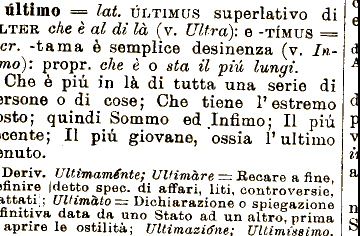 último = lat. ÚLTIMUS superlativo di
LTER che è al di là (v. Ultra): e -TÍMUS =
cr. -tama è semplice desinenza (v. In-
mo): propr. che è o sta il piú lungi.
Che è piú in là di tutta una serie di
ersone o di cose; Che tiene l'estremo
osto; quindi Sommo ed Infimo; Il piú
cente; Il piú giovane, ossia l'ultimo
enuto.
Deriv. Ultimaménte; Ultimàre = Recare a fine,
efinire [detto spec. di affari, liti, controversie,
attati]; Ultimàto = Dichiarazione o spiegazione
finitiva data da uno Stato ad un altro, prima
aprire le ostilità; Ultimazióne; Ultimíssimo.